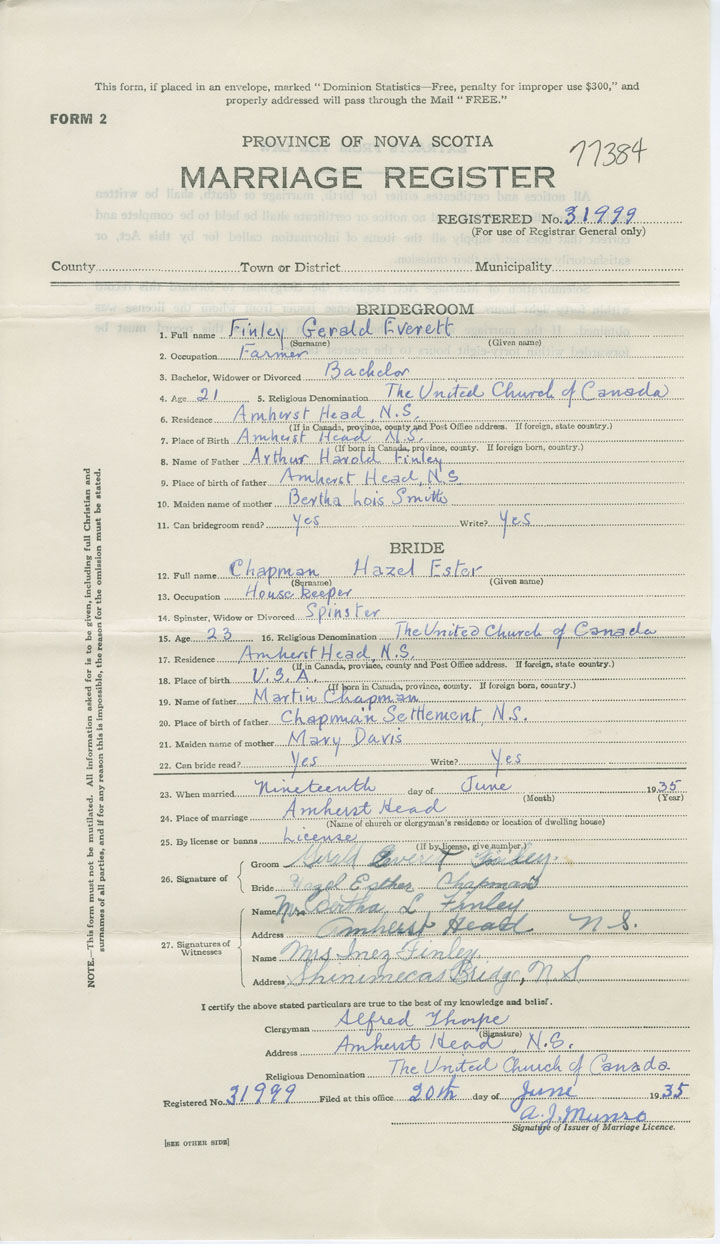 This form, if placed in an envelope, marked "Dominion Statistics—Free, penalty for improper use $300," and
properly addressed will pass through the Mail "FREE."
FORM 2
PROVINCE OF NOVA SCOTIA
77384
MARRIAGE REGISTER
REGISTERED No. 31999
(For use of Registrar General only)
County Town or District Municipality
BRIDEGROOM
1. Full name Finley Gerald Everett
(Surname) (Given name)
2. Occupation Farmer
3. Bachelor, Widower or Divorced Bachelor
4. Age 21 5. Religious Denomination The United Church of Canada
6. Residence Amherst Head, N.S.
(If in Canada, province, county and Post Office address. If foreign, state country.)
7. Place of Birth Amherst Head N.S.
(If born in Canada, province, county. If foreign born, country.)
8. Name of Father Arthur Harold Finley
9. Place of birth of father Amherst Head, N.S.
10. Maiden name of mother Bertha Lois Smith
11. Can bridegroom read? Yes Write? Yes
BRIDE
12. Full name Chapman Hazel Ester
(Surname) (Given name)
13. Occupation House keeper
14. Spinster, Widow or Divorced Spinster
15. Age 23 16. Religious Denomination The United Church of Canada
17. Residence Amherst Head, N.S.
(If in Canada, province, county and Post Office address. If foreign, state country.)
18. Place of birth U.S.A.
(If born in Canada, province, county. If foreign born, country.)
19. Name of father Martin Chapman
20. Place of birth of father Chapman Settlement, N.S.
21. Maiden name of mother Mary Davis
22. Can bride read? Yes Write? Yes
23. When married Nineteenth day of June 1935
(Month) (Year)
24. Place of marriage Amherst Head
(Name of church or clergyman's residence or location of dwelling house)
25. By license or banns License
(If by license, give number.)
26. Signature of
Groom Gerald Everett Finley.
Bride Hazel Esther Chapman
27. Signatures of Witnesses
Name Mrs Bertha L Finley
Address Amherst Head N.S.
Name Mrs Inez Finley
Address Shinimecas Bridge, N S
I certify the above stated particulars are true to the best of my knowledge and belief.
Clergyman Alfred Thorpe
(Signature)
Address Amherst Head, N.S.
Religious Denomination The United Church of Canada
Registered No. 31999 Filed at this office 20th day of June 1935
A. J. Munro
Signature of Issuer of Marriage Licence.
[SEE OTHER SIDE]
NOTE.—This form must not be mutilated. All information asked for is to be given, including full Christian and
surnames of all parties, and if for any reason this is impossible, the reason for the omission must be stated.